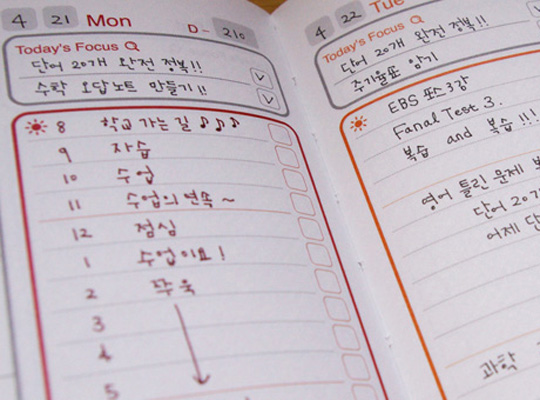 4 21 Mon D- 210
Today's Focus
단어 20개 완전 정복!!
수학 오답노트 만들기!!
8 학교 가는 길 ♪♪♪
9 자습
10 수업
11 수업의 연속 ~
12 점심
1 수업이요!
2 쭈욱
3
4
5
4 22 Tue
Today's Focus
단어 20개 완전 정복!!
주기율표 암기
EBS 포스 3강
Fanal Test 3.
복습 and 복습!!!
영어 틀린 문제
단어 20개
어제 단
과학